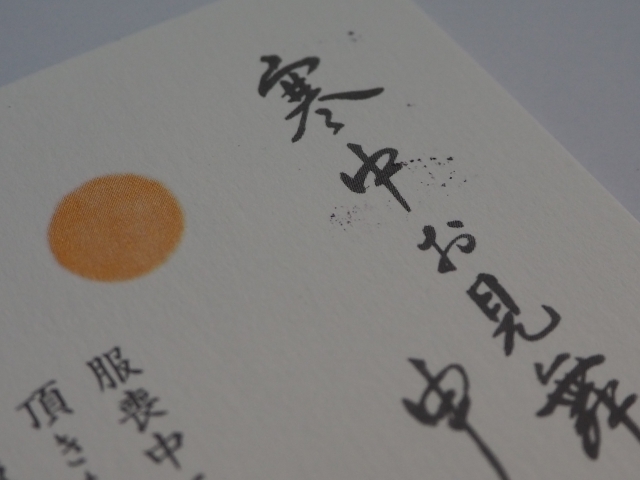 寒中お見舞
申
服喪中
頂き